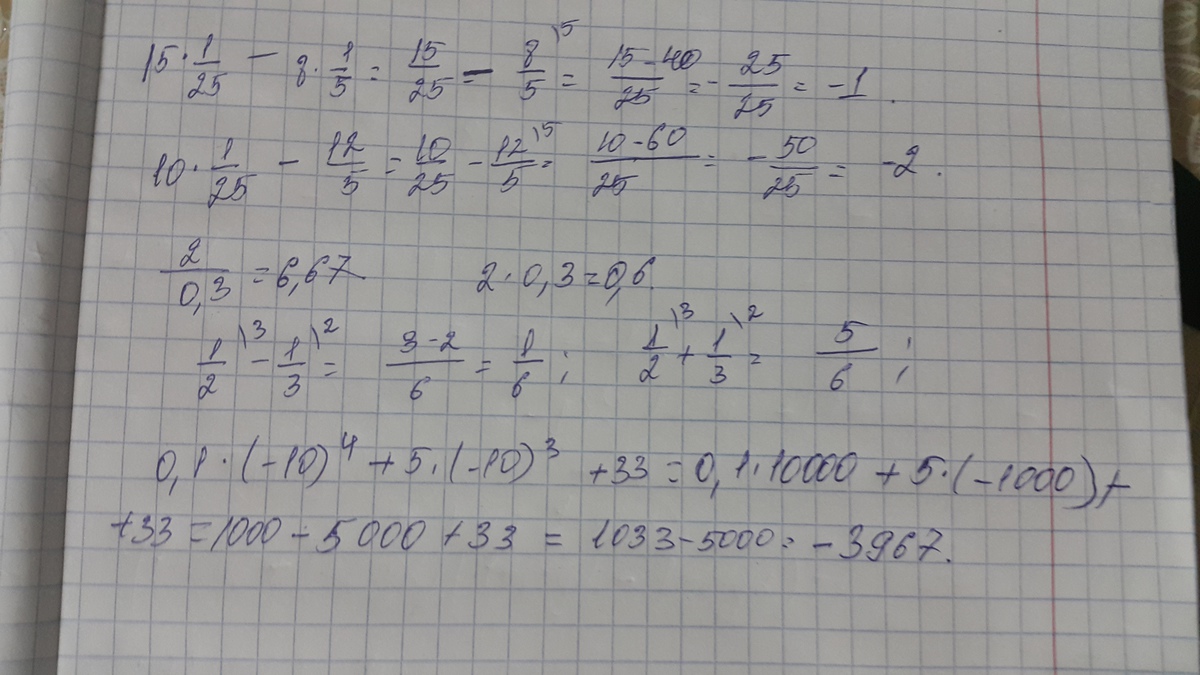 15·1/25 - 8·1/5 = 15/25 - 8/5 \5 = 15-40/25 = -25/25 = -1.
10·1/25 - 12/5 = 10/25 - 12/5 \5 = 10-60/25 = -50/25 = -2.
2/0,3 = 6,67 2·0,3=0,6.
1/2 \3 - 1/3 \2 = 3-2/6 = 1/6; 1/2 \3 + 1/3 \2 = 5/6;
0,1·(-10)⁴+5·(-10)³ +33=0,1·10000+5·(-1000)+
+33=1000-5000+33 = 1033-5000=-3967.